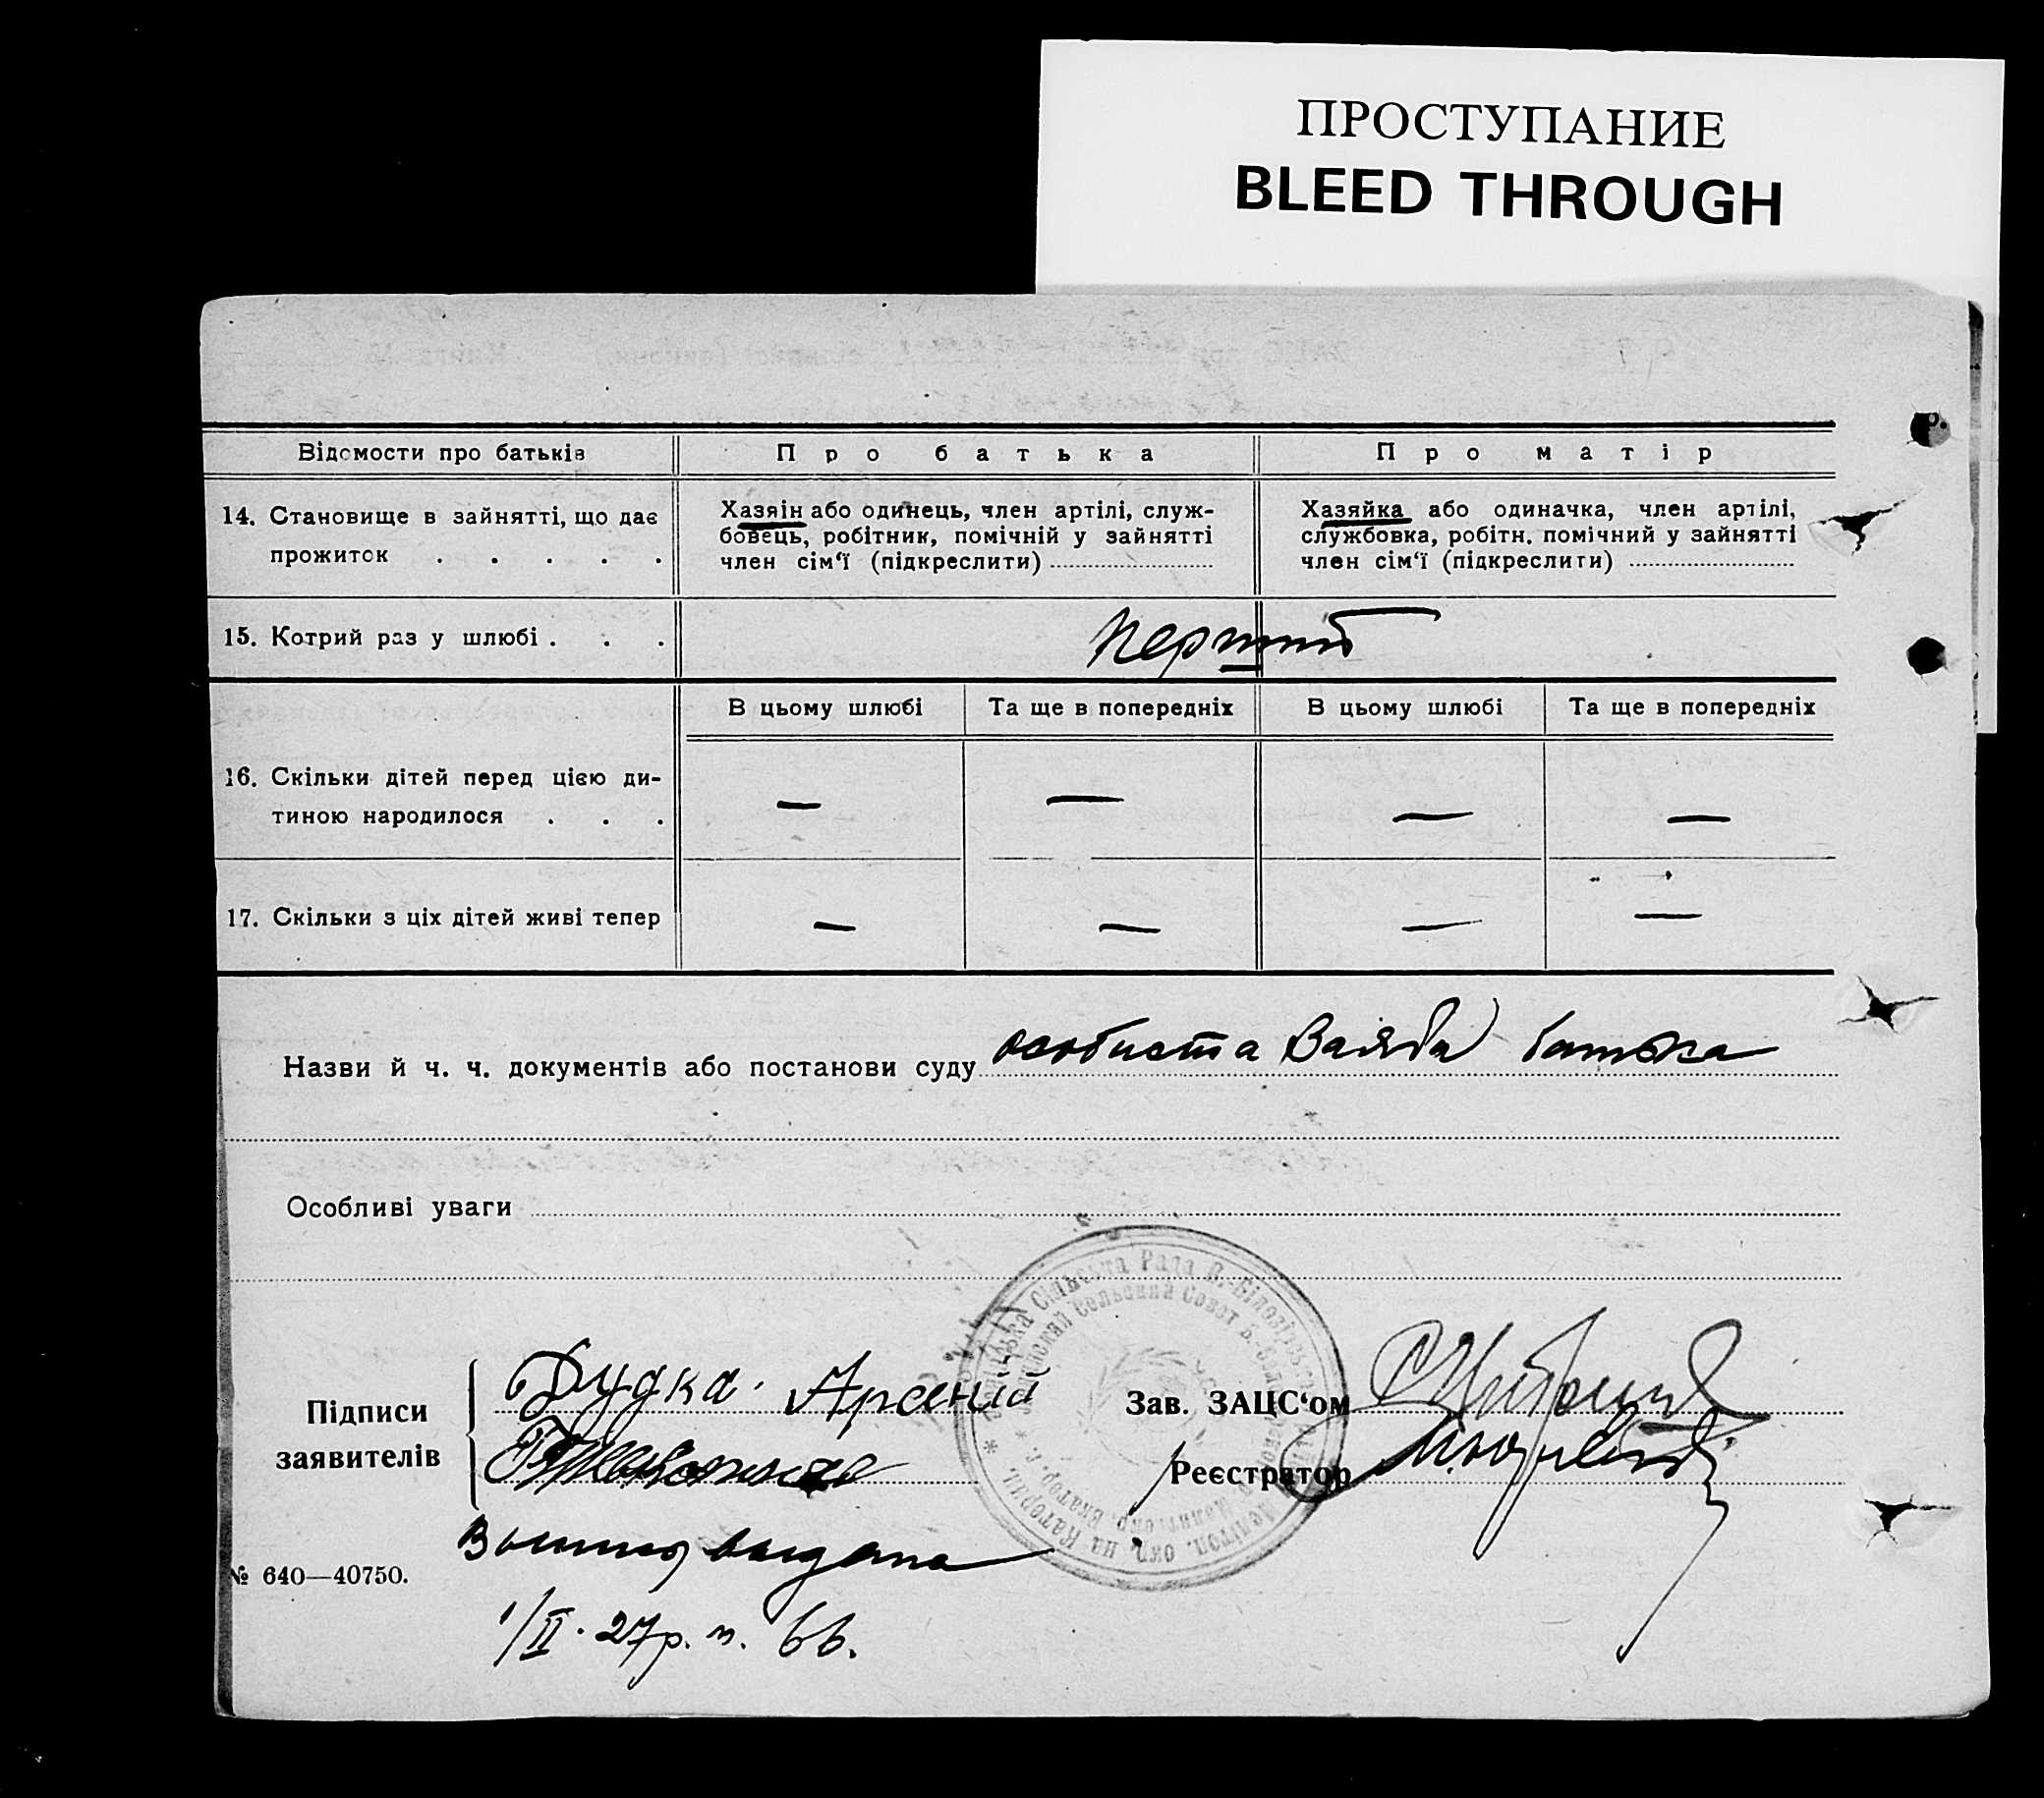 ПРОСТУПАНИЕ
BLEED THROUGH
Відомости про батьків
Про батька
Про матір
14. Становище в зайнятті, що дає
прожиток . . . . .
Хазяїн або одинець, член артілі, служ-
бовець, робітник, помічній у зайнятті
член сім‘ї (підкреслити)
Хазяйка або одиначка, член артілі,
службовка, робітн. помічний у зайнятті
член сім‘ї (підкреслити)
15. Котрий раз у шлюбі . . .
перший
В цьому шлюбі
Та ще в попередніх
В цьому шлюбі
Та ще в попередніх
16. Скільки дітей перед цією ди-
тиною народилося . . .
— — — —
17. Скільки з ціх дітей живі тепер
— — — —
Назви й ч. ч. документів або постанови суду особиста Заява батька
Особливі уваги
Підписи
заявителів
Дудка Арсеній
Зав. ЗАЦС‘ом
Реєстратор
Сільська Рада В.-Білозірськ
Сельский Совет
№ 640—40750.
1/II. 27р. п. 66.